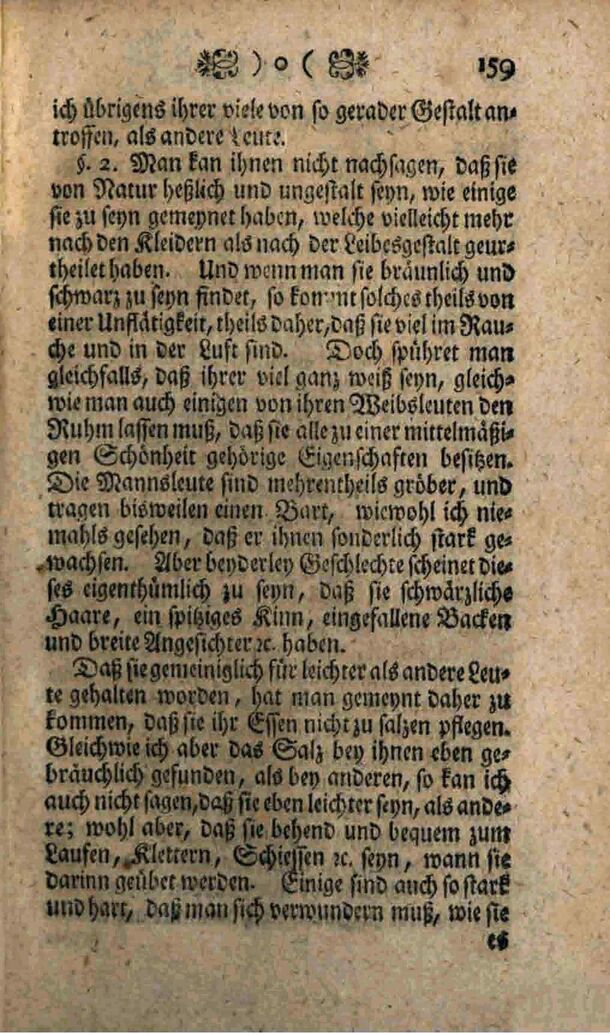 ) o ( 159
ich übrigens ihrer viele von so gerader Gestalt an-
troffen, als andere Leute.
§. 2. Man kan ihnen nicht nachsagen, daß sie
von Natur heßlich und ungestalt seyn, wie einige
sie zu seyn gemeynet haben, welche vielleicht mehr
nach den Kleidern als nach der Leibesgestalt geur-
theilet haben. Und wenn man sie bräunlich und
schwarz zu seyn findet, so kommt solches theils von
einer Unflätigkeit, theils daher, daß sie viel im Rau-
che und in der Luft sind. Doch spühret man
gleichfalls, daß ihrer viel ganz weiß seyn, gleich-
wie man auch einigen von ihren Weibsleuten den
Ruhm lassen muß, daß sie alle zu einer mittelmäßi-
gen Schönheit gehörige Eigenschaften besitzen.
Die Mannsleute sind mehrentheils gröber, und
tragen bisweilen einen Bart, wiewohl ich nie-
mahls gesehen, daß er ihnen sonderlich stark ge-
wachsen. Aber beyderley Geschlechte scheinet die-
ses eigenthümlich zu seyn, daß sie schwärzliche
Haare, ein spitziges Kinn, eingefallene Backen
und breite Angesichter ꝛc. haben.
Daß sie gemeiniglich für leichter als andere Leu-
te gehalten worden, hat man gemeynt daher zu
kommen, daß sie ihr Essen nicht zu salzen pflegen.
Gleichwie ich aber das Salz bey ihnen eben ge-
bräuchlich gefunden, als bey anderen, so kan ich
auch nicht sagen, daß sie eben leichter seyn, als ande-
re; wohl aber, daß sie behend und bequem zum
Laufen, Klettern, Schiessen ꝛc. seyn, wann sie
darinn geübet werden. Einige sind auch so stark
und hart, daß man sich verwundern muß, wie sie
es